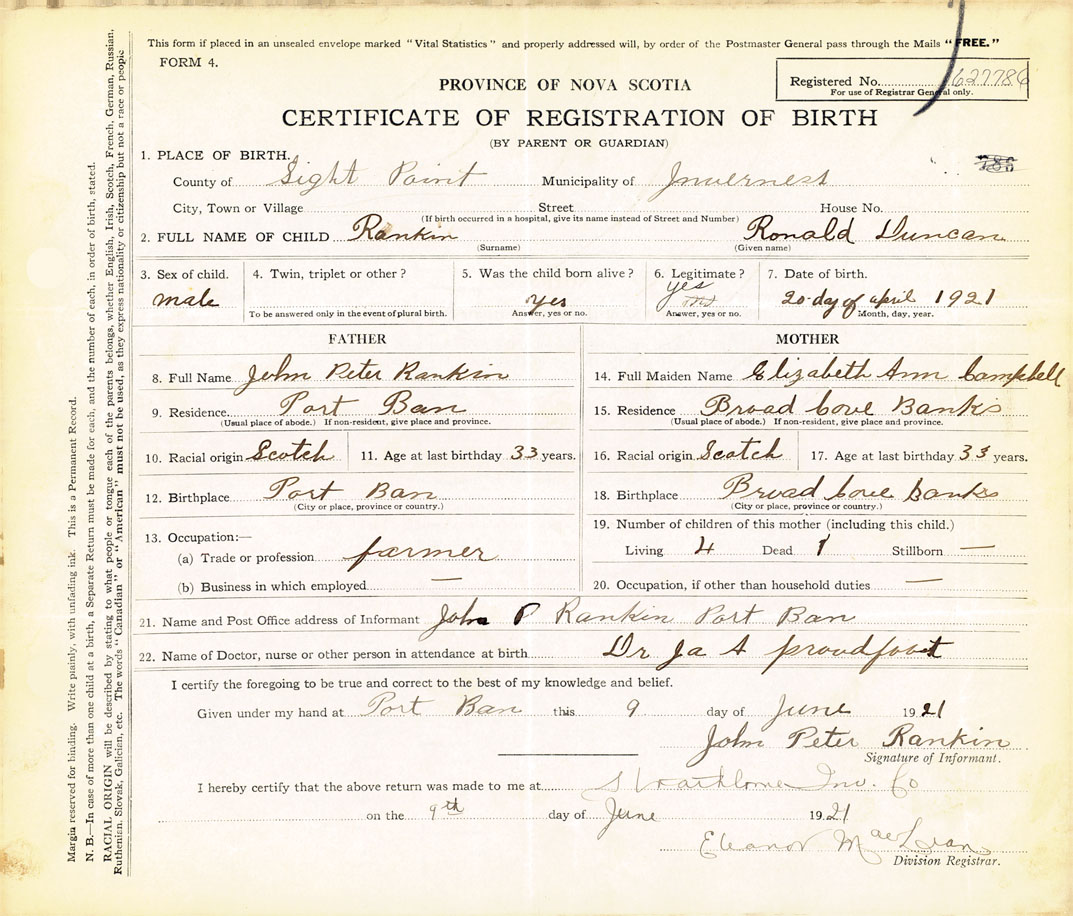 This form if placed in an unsealed envelope marked "Vital Statistics" and properly addressed will, by order of the Postmaster General pass through the Mails "FREE."
FORM 4.
Registered No. 627786
For use of Registrar General only.
PROVINCE OF NOVA SCOTIA
CERTIFICATE OF REGISTRATION OF BIRTH
(BY PARENT OR GUARDIAN)
1. PLACE OF BIRTH.
County of Sight Point Municipality of Inverness
City, Town or Village Street House No.
(If birth occurred in a hospital, give its name instead of Street and Number)
2. FULL NAME OF CHILD Rankin Ronald Duncan
(Surname) (Given name)
3. Sex of child. 4. Twin, triplet or other? 5. Was the child born alive? 6. Legitimate? 7. Date of birth.
male yes yes 20 day of april 1921
To be answered only in the event of plural birth. Answer, yes or no. Answer, yes or no. Month, day, year.
FATHER
8. Full Name John Peter Rankin
9. Residence Port Ban
(Usual place of abode.) If non-resident, give place and province.
10. Racial origin Scotch 11. Age at last birthday 33 years.
12. Birthplace Port Ban
(City or place, province or country.)
13. Occupation:—
(a) Trade or profession farmer
(b) Business in which employed —
MOTHER
14. Full Maiden Name Elizabeth Ann Campbell
15. Residence Broad Cove Banks
(Usual place of abode.) If non-resident, give place and province.
16. Racial origin Scotch 17. Age at last birthday 33 years.
18. Birthplace Broad Cove Banks
(City or place, province or country.)
19. Number of children of this mother (including this child.)
Living 4 Dead 1 Stillborn —
20. Occupation, if other than household duties —
21. Name and Post Office address of Informant John P Rankin Port Ban
22. Name of Doctor, nurse or other person in attendance at birth Dr Ja A proudfoot
I certify the foregoing to be true and correct to the best of my knowledge and belief.
Given under my hand at Port Ban this 9 day of June 1921
John Peter Rankin
Signature of Informant.
I hereby certify that the above return was made to me at Strathlorne Inv. Co
on the 9th day of June 1921
Eleanor MacLean
Division Registrar.
Margin reserved for binding. Write plainly, with unfading ink. This is a Permanent Record.
N. B.—In case of more than one child at a birth, a Separate Return must be made for each, and the number of each, in order of birth, stated.
RACIAL ORIGIN will be described by stating to what people or tongue each of the parents belongs, whether English, Irish, Scotch, French, German, Russian,
Ruthenian, Slovak, Galician, etc. The words "Canadian" or "American" must not be used, as they express nationality or citizenship but not a race or people